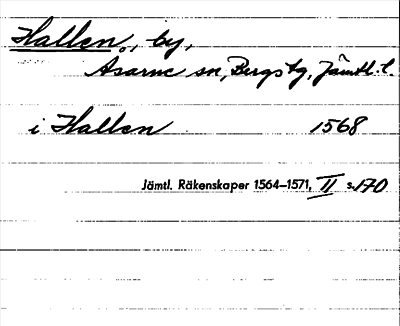 Hallen, by,
Asarne sn, Bergs tg, Jämtl. l.
i Hallen 1568
Jämtl. Räkenskaper 1564–1571, II s. 170